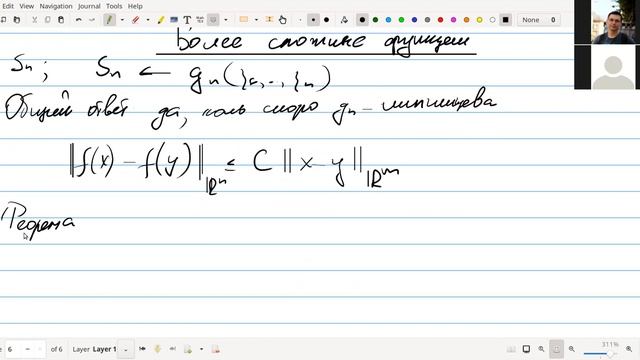 Edit View Navigation Journal Tools Options Help
None 0
Более сложные функции
Sn ; Sn ← gn(ξ1,..,ξn)
Общий ответ да, коль скоро gn – липшицева
‖f(x) – f(y)‖ℝⁿ ≤ C ‖x – y‖ℝᵐ
Теорема
6 of 6 Layer Layer 1 311%